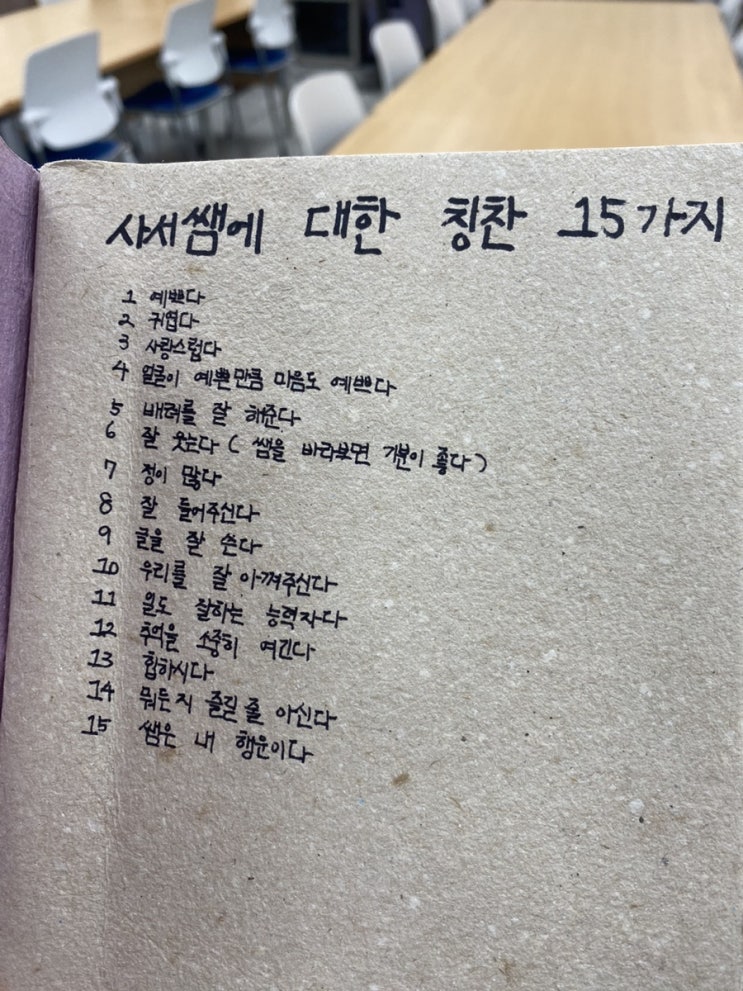 사서쌤에 대한 칭찬 15가지
1 예쁘다
2 귀엽다
3 사랑스럽다
4 얼굴이 예쁜만큼 마음도 예쁘다
5 배려를 잘 해준다
6 잘 웃는다 ( 쌤을 바라보면 기분이 좋다 )
7 정이 많다
8 잘 들어주신다
9 글을 잘 쓴다
10 우리를 잘 아껴주신다
11 일도 잘하는 능력자다
12 추억을 소중히 여긴다
13 힙하시다
14 뭐든지 즐길 줄 아신다
15 쌤은 내 행운이다